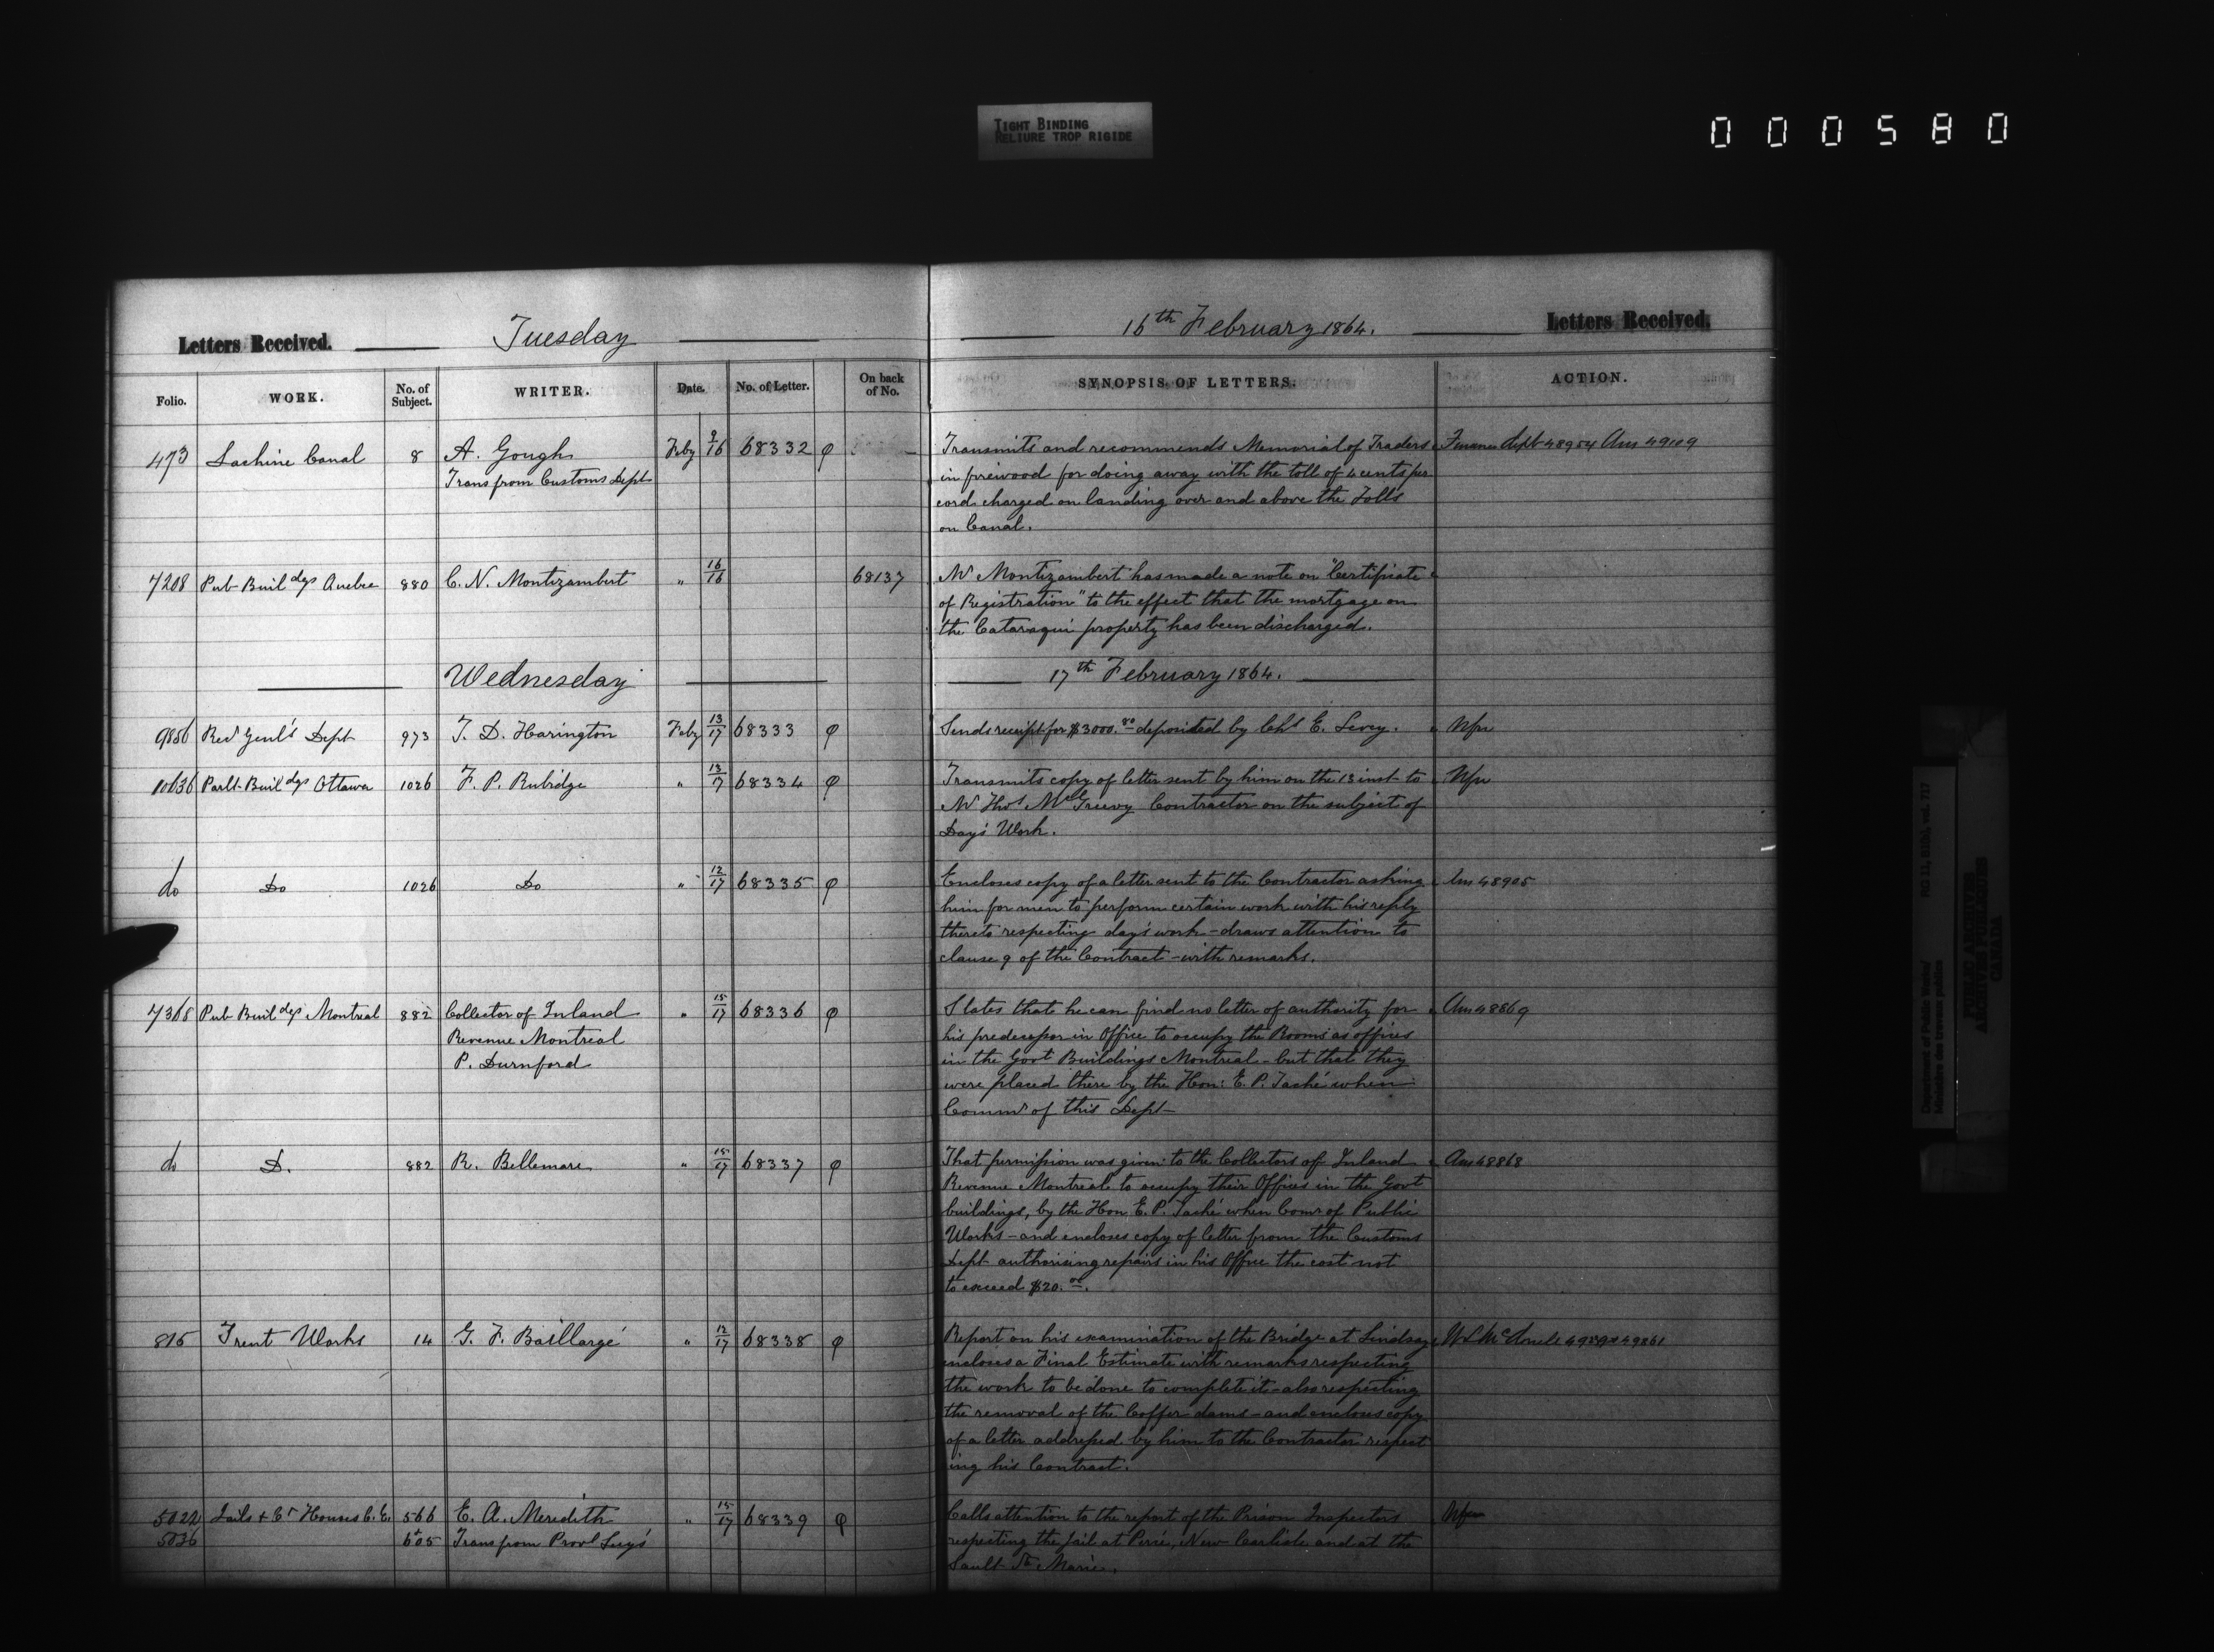 TIGHT BINDING
RELIURE TROP RIGIDE
000580
Letters Received. Tuesday 16th February 1864. Letters Received.
Folio. WORK. No. of Subject. WRITER. Date. No. of Letter. On back of No. SYNOPSIS OF LETTERS. ACTION.
473 Lachine Canal 8 A. Gough Feby 9/16 68332 φ Transmits and recommends Memorial of Traders Finance Dept 48954 Ans 49109
Trans from Customs Dept in firewood for doing away with the toll of 4 cents per
cord charged on landing over and above the Tolls
on Canal.
7208 Pub Buildgs Quebec 880 C. N. Montizambert " 16/16 68137 Mr Montizambert has made a note on "Certificate
of Registration" to the effect that the mortgage on
the Cataraqui property has been discharged.
Wednesday 17th February 1864.
9856 Recr Genl's Dept 973 T. D. Harington Feby 13/17 68333 φ Sends receipt for $3000.80 deposited by Chs E. Levey.
10636 Parlt Buildgs Ottawa 1026 F. P. Rubidge " 13/17 68334 φ Transmits copy of letter sent by him on the 13 inst to
Mr Thos McGreevy Contractor on the subject of
Day's Work.
do Do 1026 Do " 12/17 68335 φ Encloses copy of a letter sent to the Contractor asking Ans 48905
him for men to perform certain work with his reply
thereto respecting day's work - draws attention to
clause 9 of the Contract - with remarks.
7368 Pub Buildgs Montreal 882 Collector of Inland " 15/17 68336 φ States that he can find no letter of authority for Ans 48869
Revenue Montreal his predecessor in Office to occupy the Rooms as offices
P. Durnford in the Govt Buildings Montreal - but that they
were placed there by the Hon: E. P. Taché when
Commr of this Dept
do D. 882 R. Bellemare " 15/17 68337 φ That permission was given to the Collectors of Inland Ans 48868
Revenue Montreal to occupy their Offices in the Govt
buildings, by the Hon E. P. Taché when Comr of Public
Works - and encloses copy of letter from the Customs
Dept authorising repairs in his Office the cost not
to exceed $20.00.
815 Trent Works 14 G. F. Baillargé " 12/17 68338 φ Report on his examination of the Bridge at Lindsay 49861
encloses a Final Estimate with remarks respecting
the work to be done to complete it - also respecting
the removal of the Coffer dams - and encloses copy
of a letter addressed by him to the Contractor respect
ing his Contract.
5022 Jails + Ct Houses C.E. 566 E. A. Meredith " 15/17 68339 φ Calls attention to the report of the Prison Inspectors
5036 + 605 Trans from Provl Secy's respecting the jail at Percé, New Carlisle and at the
Sault Ste Marie.
Department of Public Works/
Ministère des travaux publics
RG 11, B1(b), vol. 717
PUBLIC ARCHIVES
ARCHIVES PUBLIQUES
CANADA